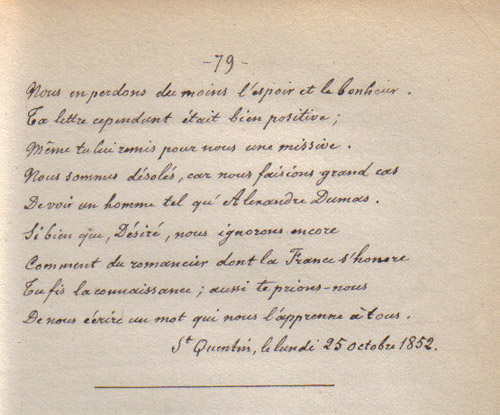 -79-
Nous en perdons du moins l'espoir et le bonheur.
Ta lettre cependant était bien positive;
Même tu lui remis pour nous une missive.
Nous sommes désolés, car nous faisions grand cas
De voir un homme tel qu'Alexandre Dumas.
Si bien que, Désiré, nous ignorons encore
Comment du romancier dont la France s'honore
Tu fis la connaissance; aussi te prions-nous
De nous écrire un mot qui nous l'apprenne à tous.
St Quentin, le lundi 25 octobre 1852.